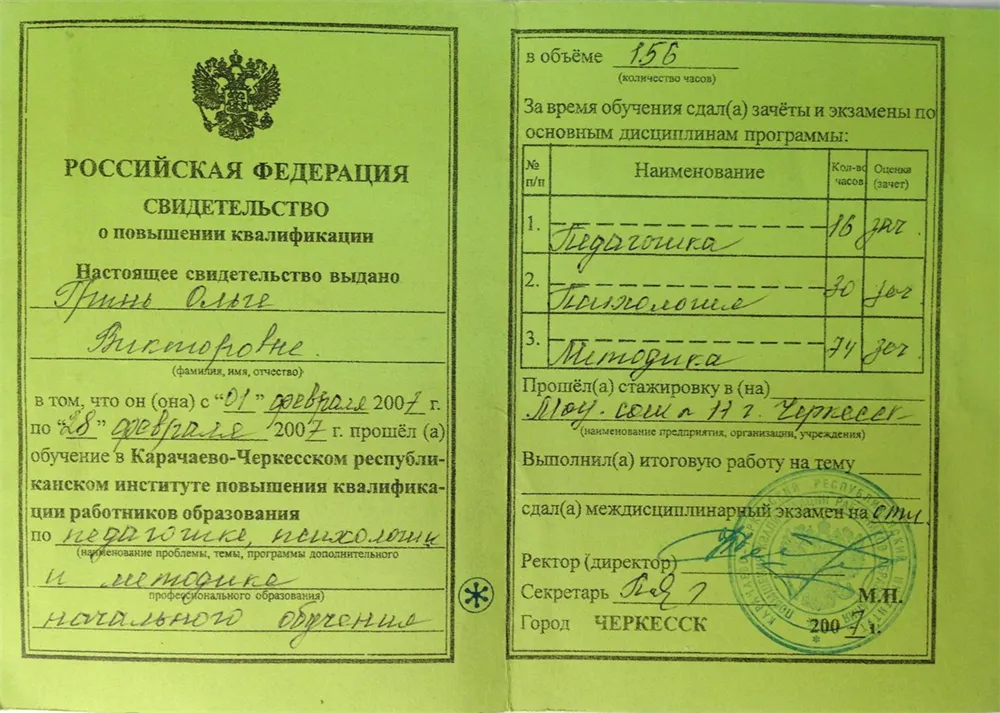 РОССИЙСКАЯ ФЕДЕРАЦИЯ
СВИДЕТЕЛЬСТВО
о повышении квалификации
Настоящее свидетельство выдано
Гринь Ольге
Викторовне.
(фамилия, имя, отчество)
в том, что он (она) с “01” февраля 2007 г.
по “28” февраля 2007 г. прошёл (а)
обучение в Карачаево-Черкесском республи-
канском институте повышения квалифика-
ции работников образования
по педагогике, психологии
(наименование проблемы, темы, программы дополнительного
и методика
профессионального образования)
начального обучения
в объёме 156
(количество часов)
За время обучения сдал(а) зачёты и экзамены по
основным дисциплинам программы:
№ п/п Наименование Кол-во часов Оценка (зачет)
1. Педагогика 16 зач.
2. Психология 30 зач
3. Методика 74 зач
Прошёл(а) стажировку в (на)
МОУ-сош № 11 г. Черкесск
(наименование предприятия, организации, учреждения)
Выполнил(а) итоговую работу на тему
сдал(а) междисциплинарный экзамен на отл.
Ректор (директор)
Секретарь
М.П.
Город ЧЕРКЕССК 2007 г.